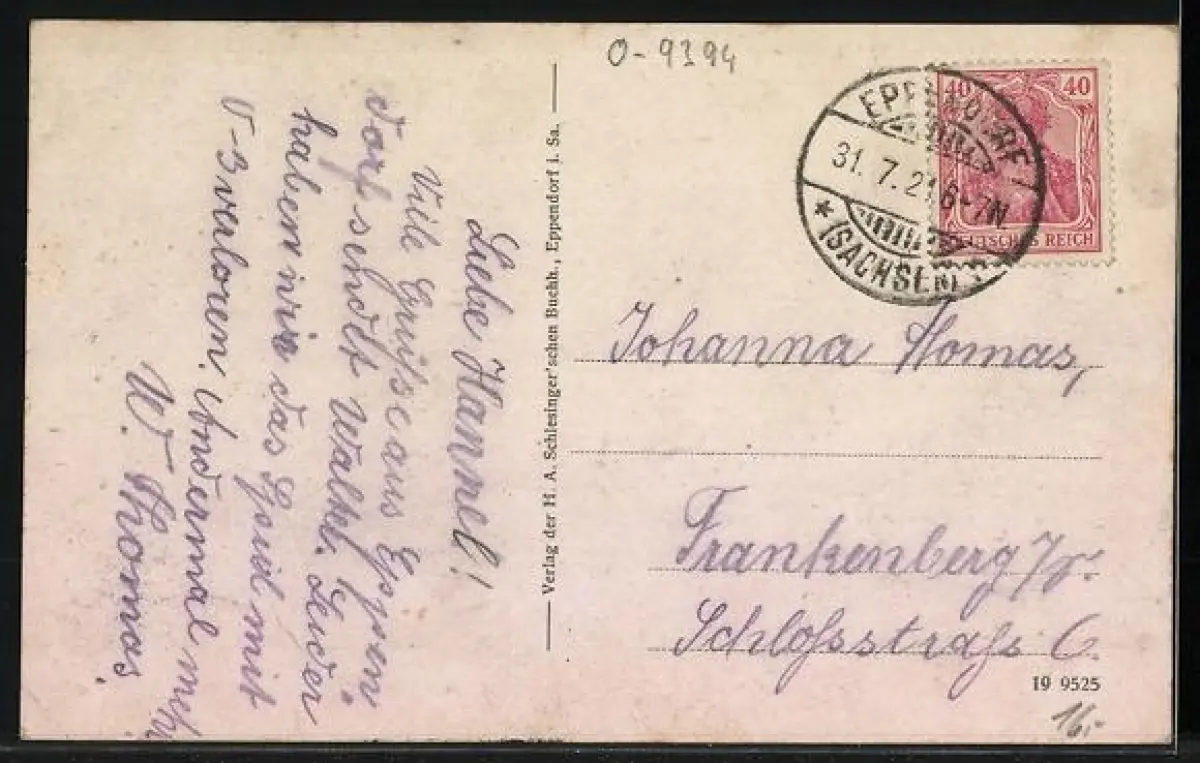 O-9394
40 40
DEUTSCHES REICH
EPPENDORF
31. 7. 21 6-7N.
* (SACHSEN) *
Liebe Hannel!
Viele Grüße aus Eppen
dorf sendet Walter. Leider
haben wir das Spiel mit
0-3 verloren. Andermal mehr
W. Thomas.
Verlag der H. A. Schlesinger'schen Buchh., Eppendorf i. Sa.
Johanna Thomas,
Frankenberg
Schloßstraße 6.
19 9525
16.-